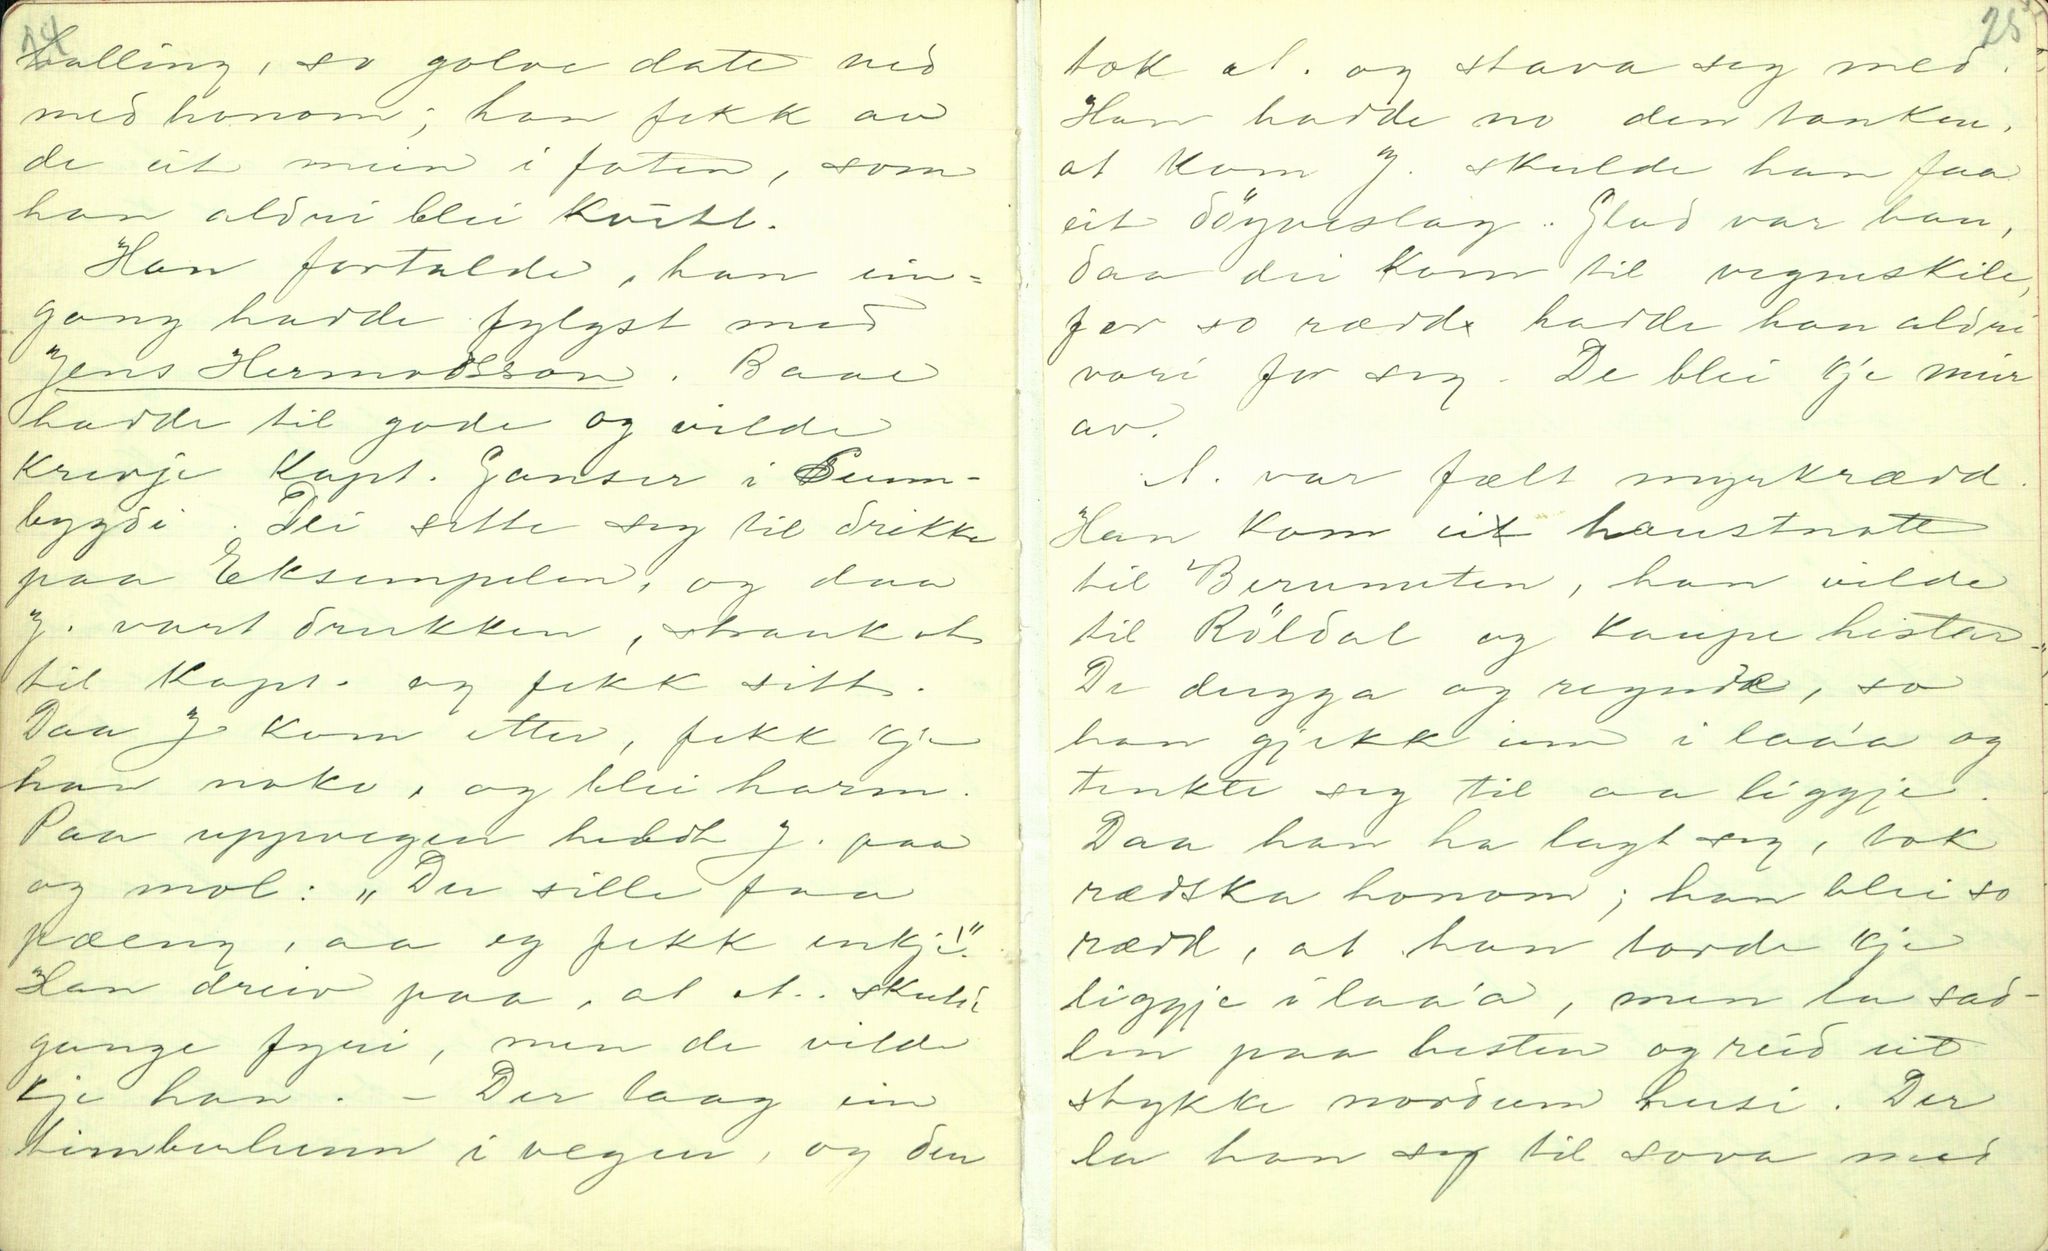 24
halling, so golve datt ned
med honom; han fekk av
de eit mein i foten, som
han aldri blei kvitt.
Han fortalde, han ein=
gong hadde fylgst med
Jens Hermodsson. Baae
hadde til gode og vilde
krevje Kapt. Ganser i
bygdi. Dei sette seg til drikke
paa Eksempelen, og daa
J. vart drukken, strauk A
til Kapt. og fekk sitt.
Daa J kom etter, fekk kje
han noko, og blei harm.
Paa uppvegen heldt J. paa
og mol: „Du sille faa
pæeng, aa eg fekk inkje!"
Han dreiv paa, at A. skulde
gange fyri, men de vilde
kje han. – Der laag ein
timberlunn i vegen, og den
25
tok A. og stava seg med.
Han hadde no den tanken,
at kom J. skulde han faa
eit döyveslag. Glad var han,
daa dei kom til vegneskile,
for so rædd hadde han aldri
vori for seg. De blei kje meir
av.
A. var fælt myrkrædd.
Han kom ei haustnott
til Berunuten, han vilde
til Röldal og kaupe hestar.
De dugga og regnde, so
han gjekk inn i laa'a og
tenkte seg til aa liggje.
Daa han ha lagt seg, tok
rædska honom; han blei so
rædd, at han torde kje
liggje i laa'a, men la sad-
len paa hesten og reid eit
stykke nordum husi. Der
la han seg til sova med